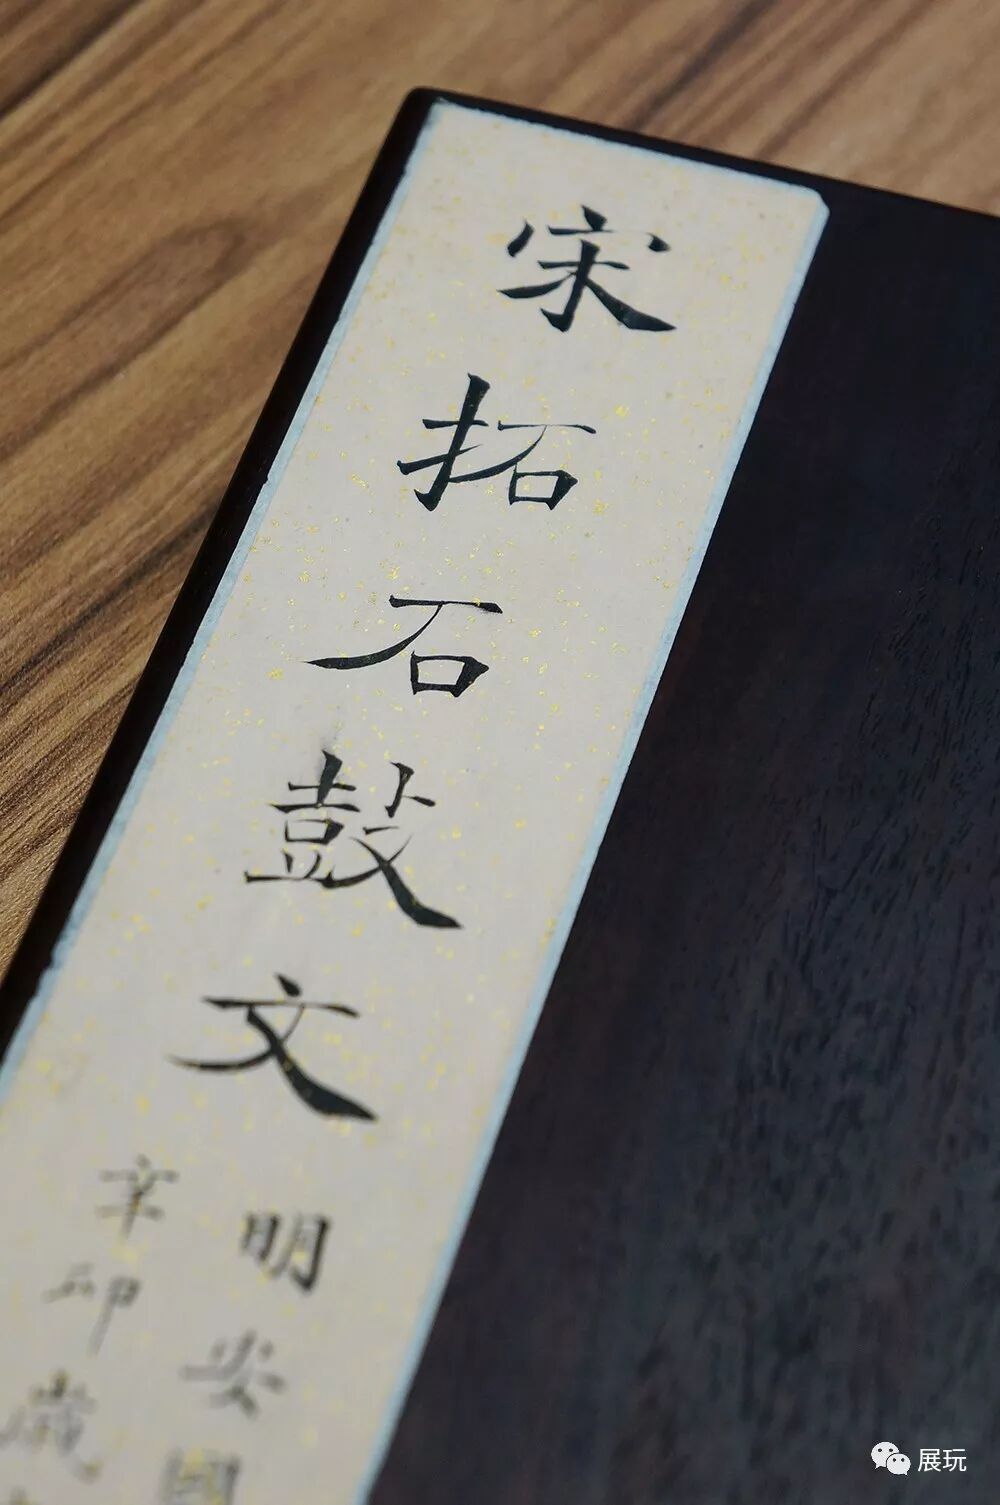 宋拓石鼓文
明安國
辛卯歲
展玩